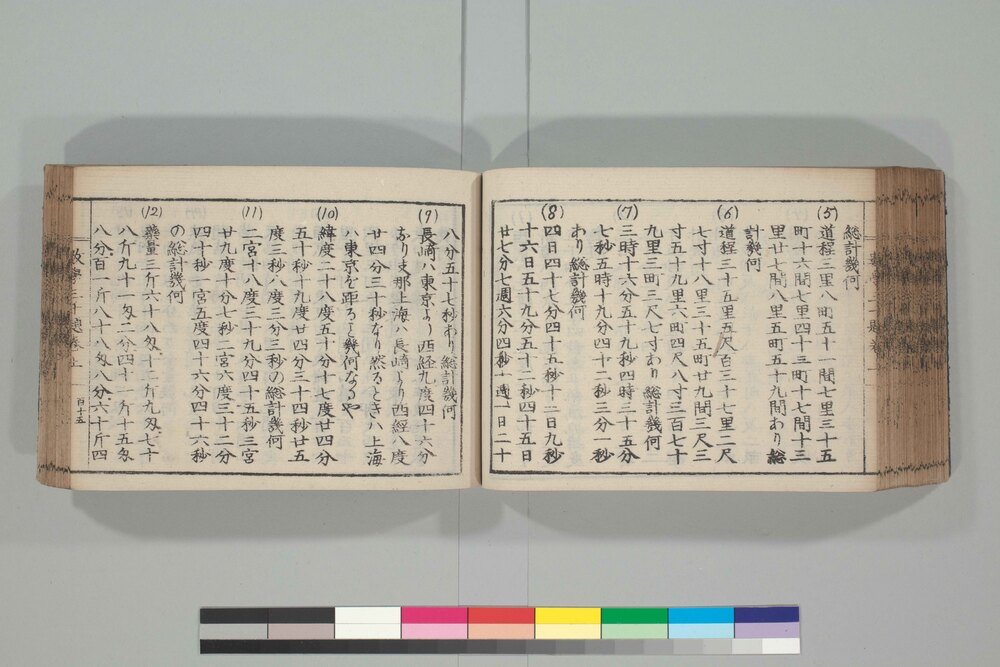 総計幾何
(5)
道程三里八町五十一間七里三十五
町十六間七里四十三町十七間十三
里廿七間八里五町五十九間あり総
計幾何
(6)
道程三十五里五尺百三十七里二尺
七寸十八里三十五町廿九間三尺三
寸五十九里六町四尺八寸三百七十
九里三町三尺七寸あり総計幾何
(7)
三時十六分五十九秒四時三十五分
七秒五時十九分四十二秒三分一秒
あり総計幾何
(8)
四日四十七分四十五秒十二日九秒
十六日五十九分五十二秒四十五日
廿七分七週六分四秒十週一日二十
八分五十七秒あり総計幾何
(9)
長崎ハ東京より西経九度四十六分
あり支那上海ハ長崎より西経八度
廿四分三十秒なり然るときハ上海
ハ東京を距る幾何なるや
(10)
緯度二十八度五十分十七度廿四分
五十秒十九度廿四分三十四秒廿五
度三秒八度三分三秒の総計幾何
(11)
二宮十八度三十九分四十五秒三宮
廿九度十分七秒二宮六度三十二分
四十秒一宮五度四十六分四十六秒
の総計幾何
(12)
薬量三斤六十八匁七十二斤九匁七十
八斤九十一匁二分四十一斤十五匁
八分百一斤八十八匁八分六十斤四
百十五